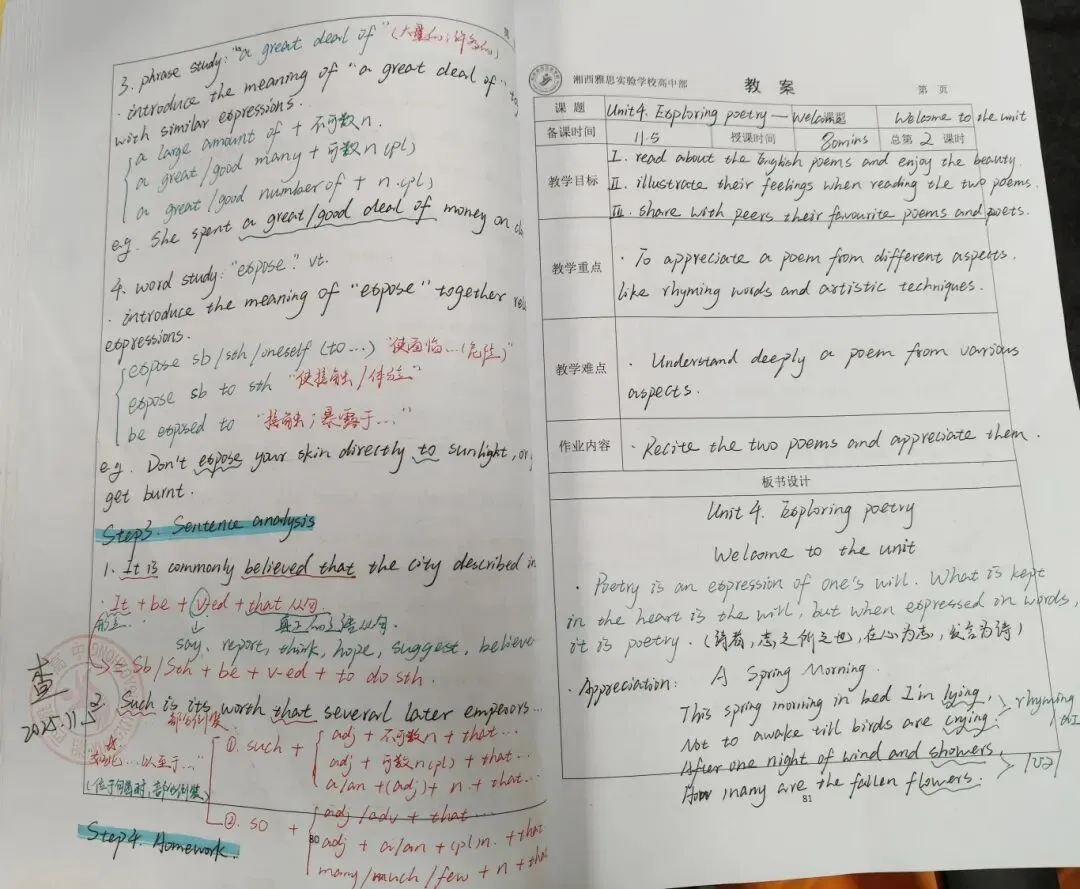 3. phrase study: "a great deal of" (大量的; 许多的)
· introduce the meaning of "a great deal of" tog
with similar expressions.
a large amount of + 不可数n.
a great/good many + 可数n(pl)
a great/good number of + n.(pl)
e.g. She spent a great/good deal of money on cl
4. word study: "expose". vt.
· introduce the meaning of "expose" together rel
expressions.
expose sb/sth/oneself (to...) "使面临...(危险)"
expose sb to sth "使接触/体验"
be exposed to "接触; 暴露于..."
e.g. Don't expose your skin directly to sunlight, or y
get burnt.
Step3. Sentence analysis
1. It is commonly believed that the city described in
· It + be + v-ed + that 从句.
真正的主语从句.
say, report, think, hope, suggest, believe
S = Sb/Sth + be + v-ed + to do sth.
查
2025.11.5
2. Such is its worth that several later emperors...
部分倒装
"如此...以至于..."
(位于句首时, 部分倒装)
①. such +
adj + 不可数n + that...
adj + 可数n(pl) + that...
a/an + (adj) + n. + that...
②. so +
adj/adv + that...
adj + a/an + (pl)n. + that
many/much/few + n + that
Step4. Homework.
80
湘西雅思实验学校高中部
教 案
第 页
课 题 Unit4. Exploring poetry — Welcome to the unit
备课时间 11.5 授课时间 80mins 总第 2 课时
教学目标
I. read about the English poems and enjoy the beauty.
II. illustrate their feelings when reading the two poems.
III. share with peers their favourite poems and poets.
教学重点
· To appreciate a poem from different aspects.
like rhyming words and artistic techniques.
教学难点
· Understand deeply a poem from various
aspects.
作业内容 · Recite the two poems and appreciate them.
板书设计
Unit 4. Exploring poetry
Welcome to the unit
· Poetry is an expression of one's will. What is kept
in the heart is the will, but when expressed in words,
it is poetry. (诗者, 志之所之也, 在心为志, 发言为诗)
· Appreciation: A Spring Morning.
This spring morning in bed I'm lying,
rhyming
Not to awake till birds are crying.
/aɪ/
After one night of wind and showers,
How many are the fallen flowers.
/ʊə/
81